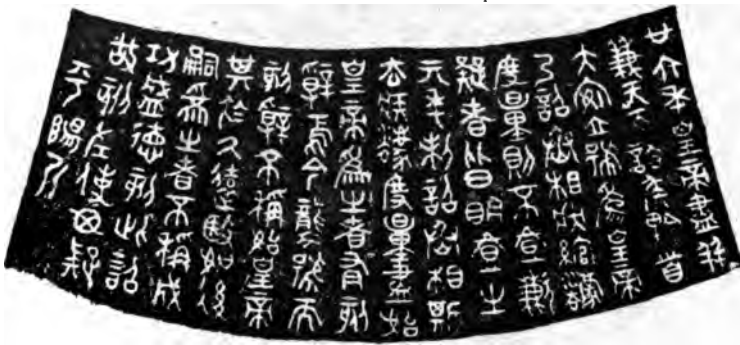 廿六年皇帝盡并
兼天下諸侯黔首
大安立號為皇帝
乃詔丞相狀綰灋
度量則不壹歉
疑者皆明壹之
元年制詔丞相斯
去疾灋度量盡始
皇帝為之者有刻
辭焉今襲號而
刻辭不稱始皇帝
其於久遠殹如後
嗣為之者不稱成
功盛德刻此詔
故刻左使毋疑
平陽斤